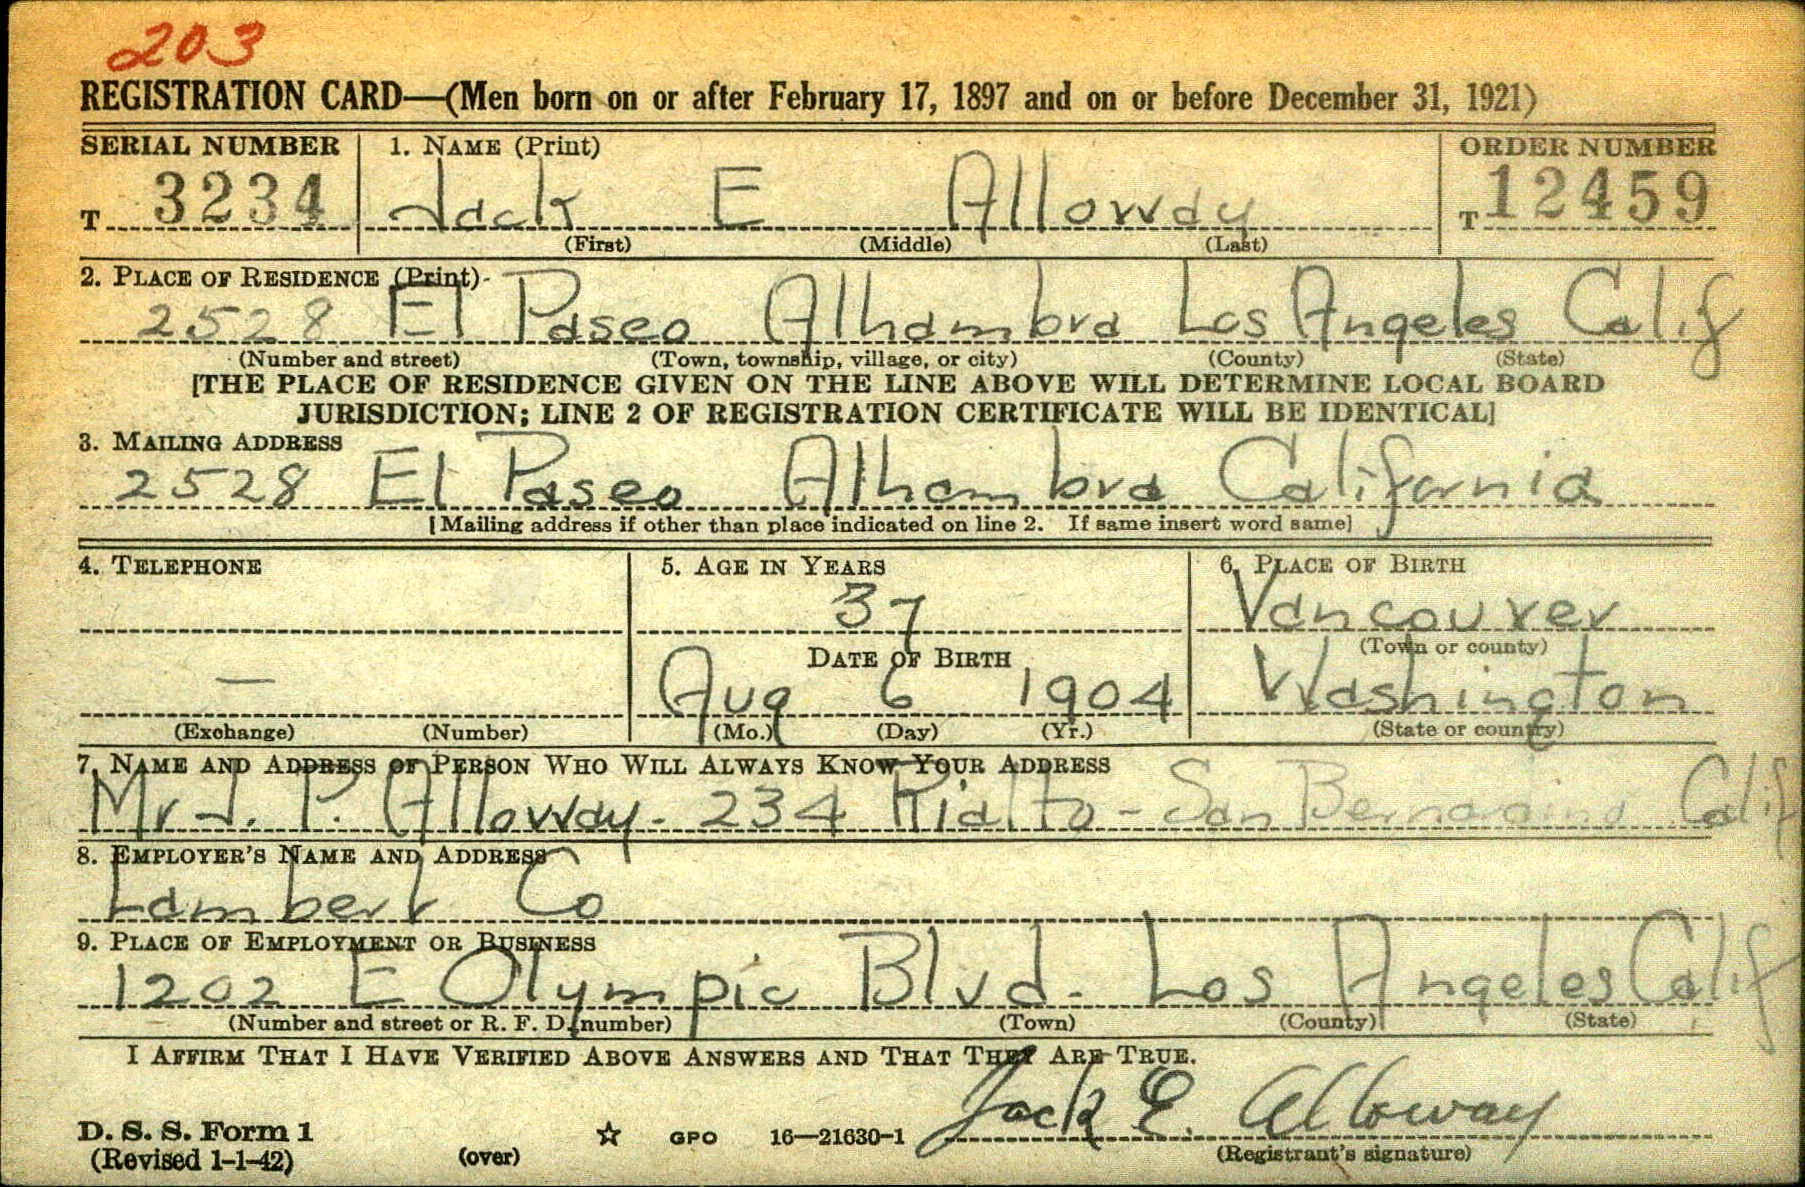 203
REGISTRATION CARD—(Men born on or after February 17, 1897 and on or before December 31, 1921)
SERIAL NUMBER 1. NAME (Print) ORDER NUMBER
T 3234 Jack E Alloway T 12459
(First) (Middle) (Last)
2. PLACE OF RESIDENCE (Print)
2528 El Paseo Alhambra Los Angeles Calif
(Number and street) (Town, township, village, or city) (County) (State)
[THE PLACE OF RESIDENCE GIVEN ON THE LINE ABOVE WILL DETERMINE LOCAL BOARD
JURISDICTION; LINE 2 OF REGISTRATION CERTIFICATE WILL BE IDENTICAL]
3. MAILING ADDRESS
2528 El Paseo Alhambra California
[Mailing address if other than place indicated on line 2. If same insert word same]
4. TELEPHONE 5. AGE IN YEARS 6. PLACE OF BIRTH
37 Vancouver
DATE OF BIRTH (Town or county)
— Aug 6 1904 Washington
(Exchange) (Number) (Mo.) (Day) (Yr.) (State or country)
7. NAME AND ADDRESS OF PERSON WHO WILL ALWAYS KNOW YOUR ADDRESS
Mr J. P. Alloway - 234 Rialto - San Bernardino Calif
8. EMPLOYER'S NAME AND ADDRESS
Lambert Co
9. PLACE OF EMPLOYMENT OR BUSINESS
1202 E Olympic Blvd. Los Angeles Calif
(Number and street or R. F. D. number) (Town) (County) (State)
I AFFIRM THAT I HAVE VERIFIED ABOVE ANSWERS AND THAT THEY ARE TRUE.
Jack E. Alloway
D. S. S. Form 1
(Revised 1-1-42) (over) ☆ GPO 16—21630-1 (Registrant's signature)